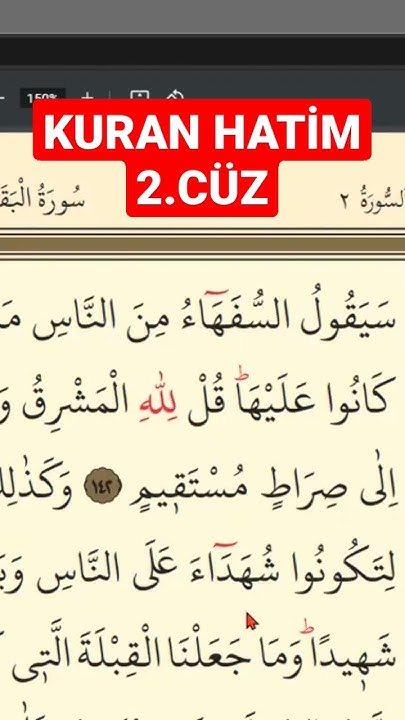 150%
KURAN HATİM
2.CÜZ
السُّورَةُ ٢
سُورَةُ الْبَقَ
سَيَقُولُ السُّفَهَٓاءُ مِنَ النَّاسِ مَ
كَانُوا عَلَيْهَاۜ قُلْ لِلّٰهِ الْمَشْرِقُ وَ
اِلٰى صِرَاطٍ مُسْتَق۪يمٍ ﴿١٤٢﴾ وَكَذٰلِ
لِتَكُونُوا شُهَدَٓاءَ عَلَى النَّاسِ وَيَ
شَه۪يدًاۜ وَمَا جَعَلْنَا الْقِبْلَةَ الَّت۪ي